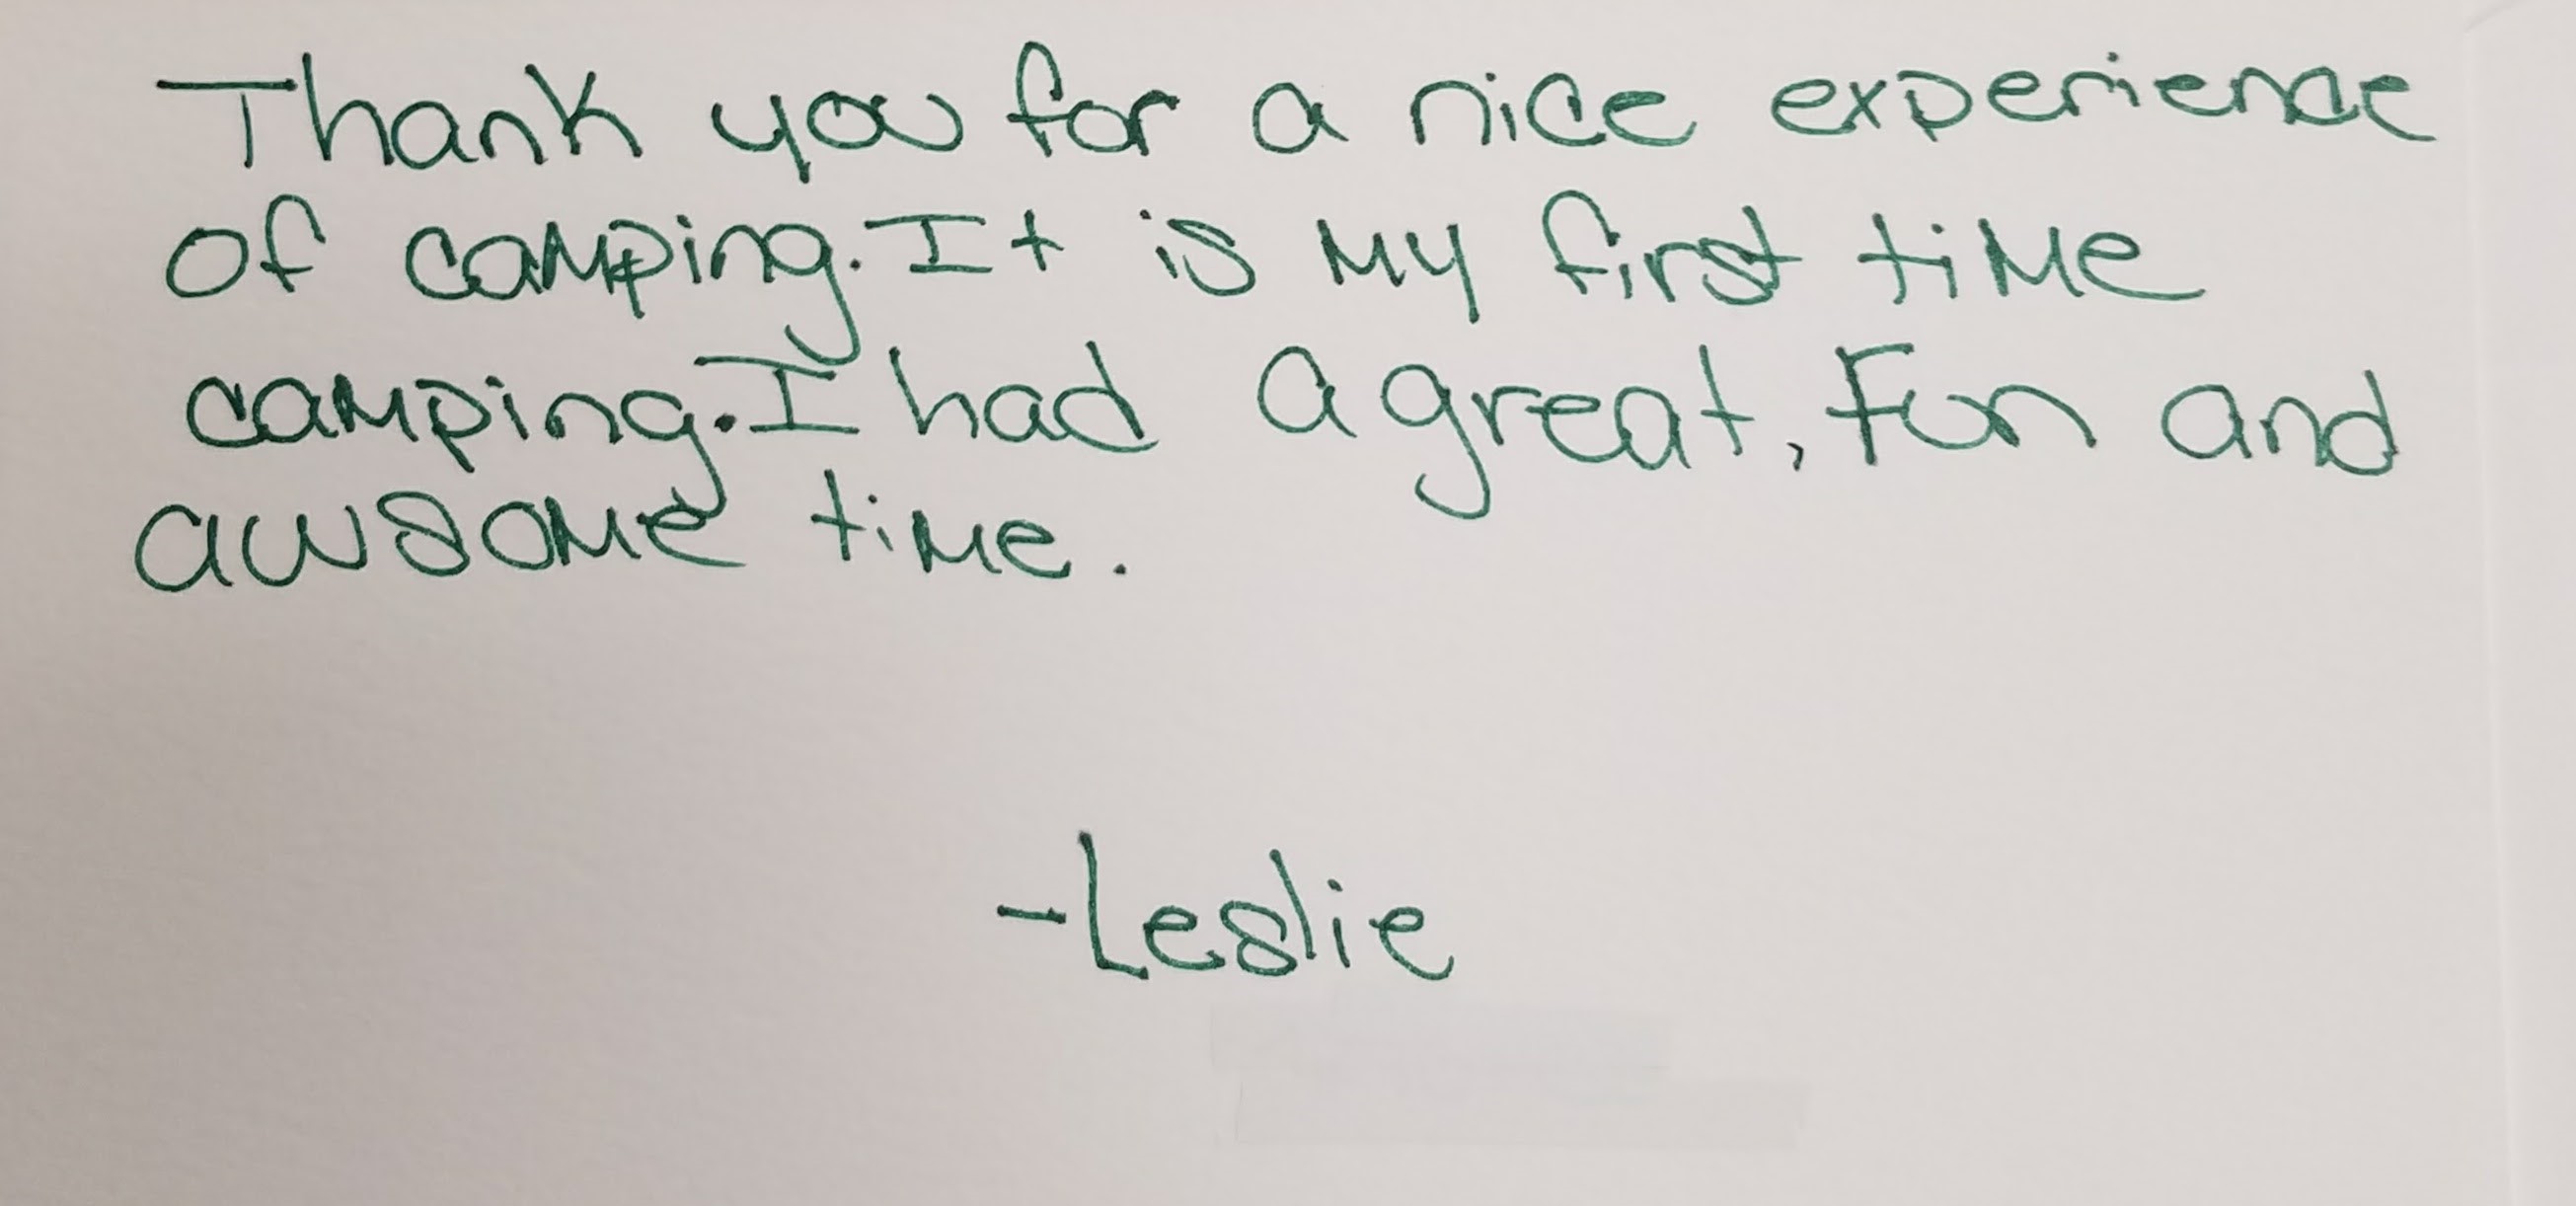 Thank you for a nice experience
of camping. It is my first time
camping. I had a great, Fun and
awsome time.
-Leslie